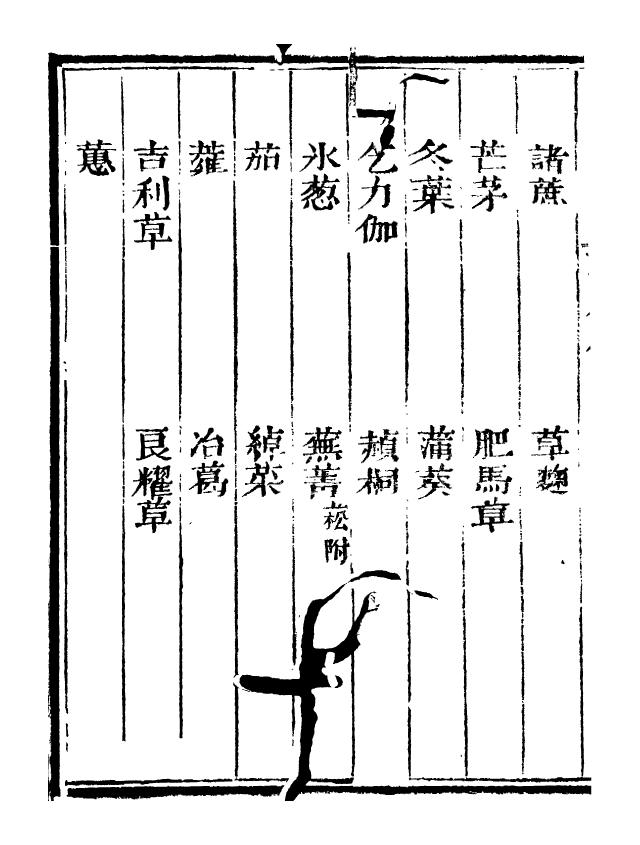 諸蔗　草麴
芒茅　肥馬草
冬葉　蒲葵
乞力伽　赬桐
水葱　蕪菁菘附
茄　綽菜
蕹　冶葛
吉利草　良耀草
蕙